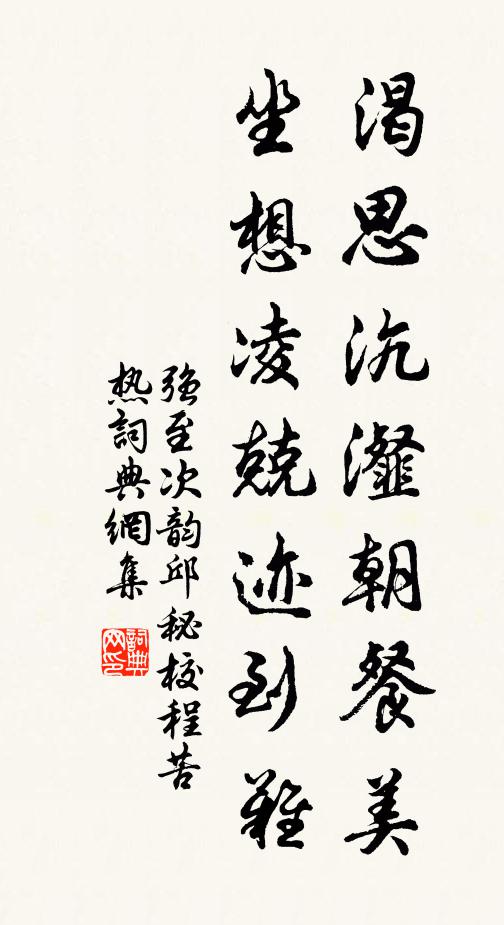 渴思沆瀣朝餐美
坐想凌兢迹到难
强至次韵邱秘校程苦
热词典网集
词典网印